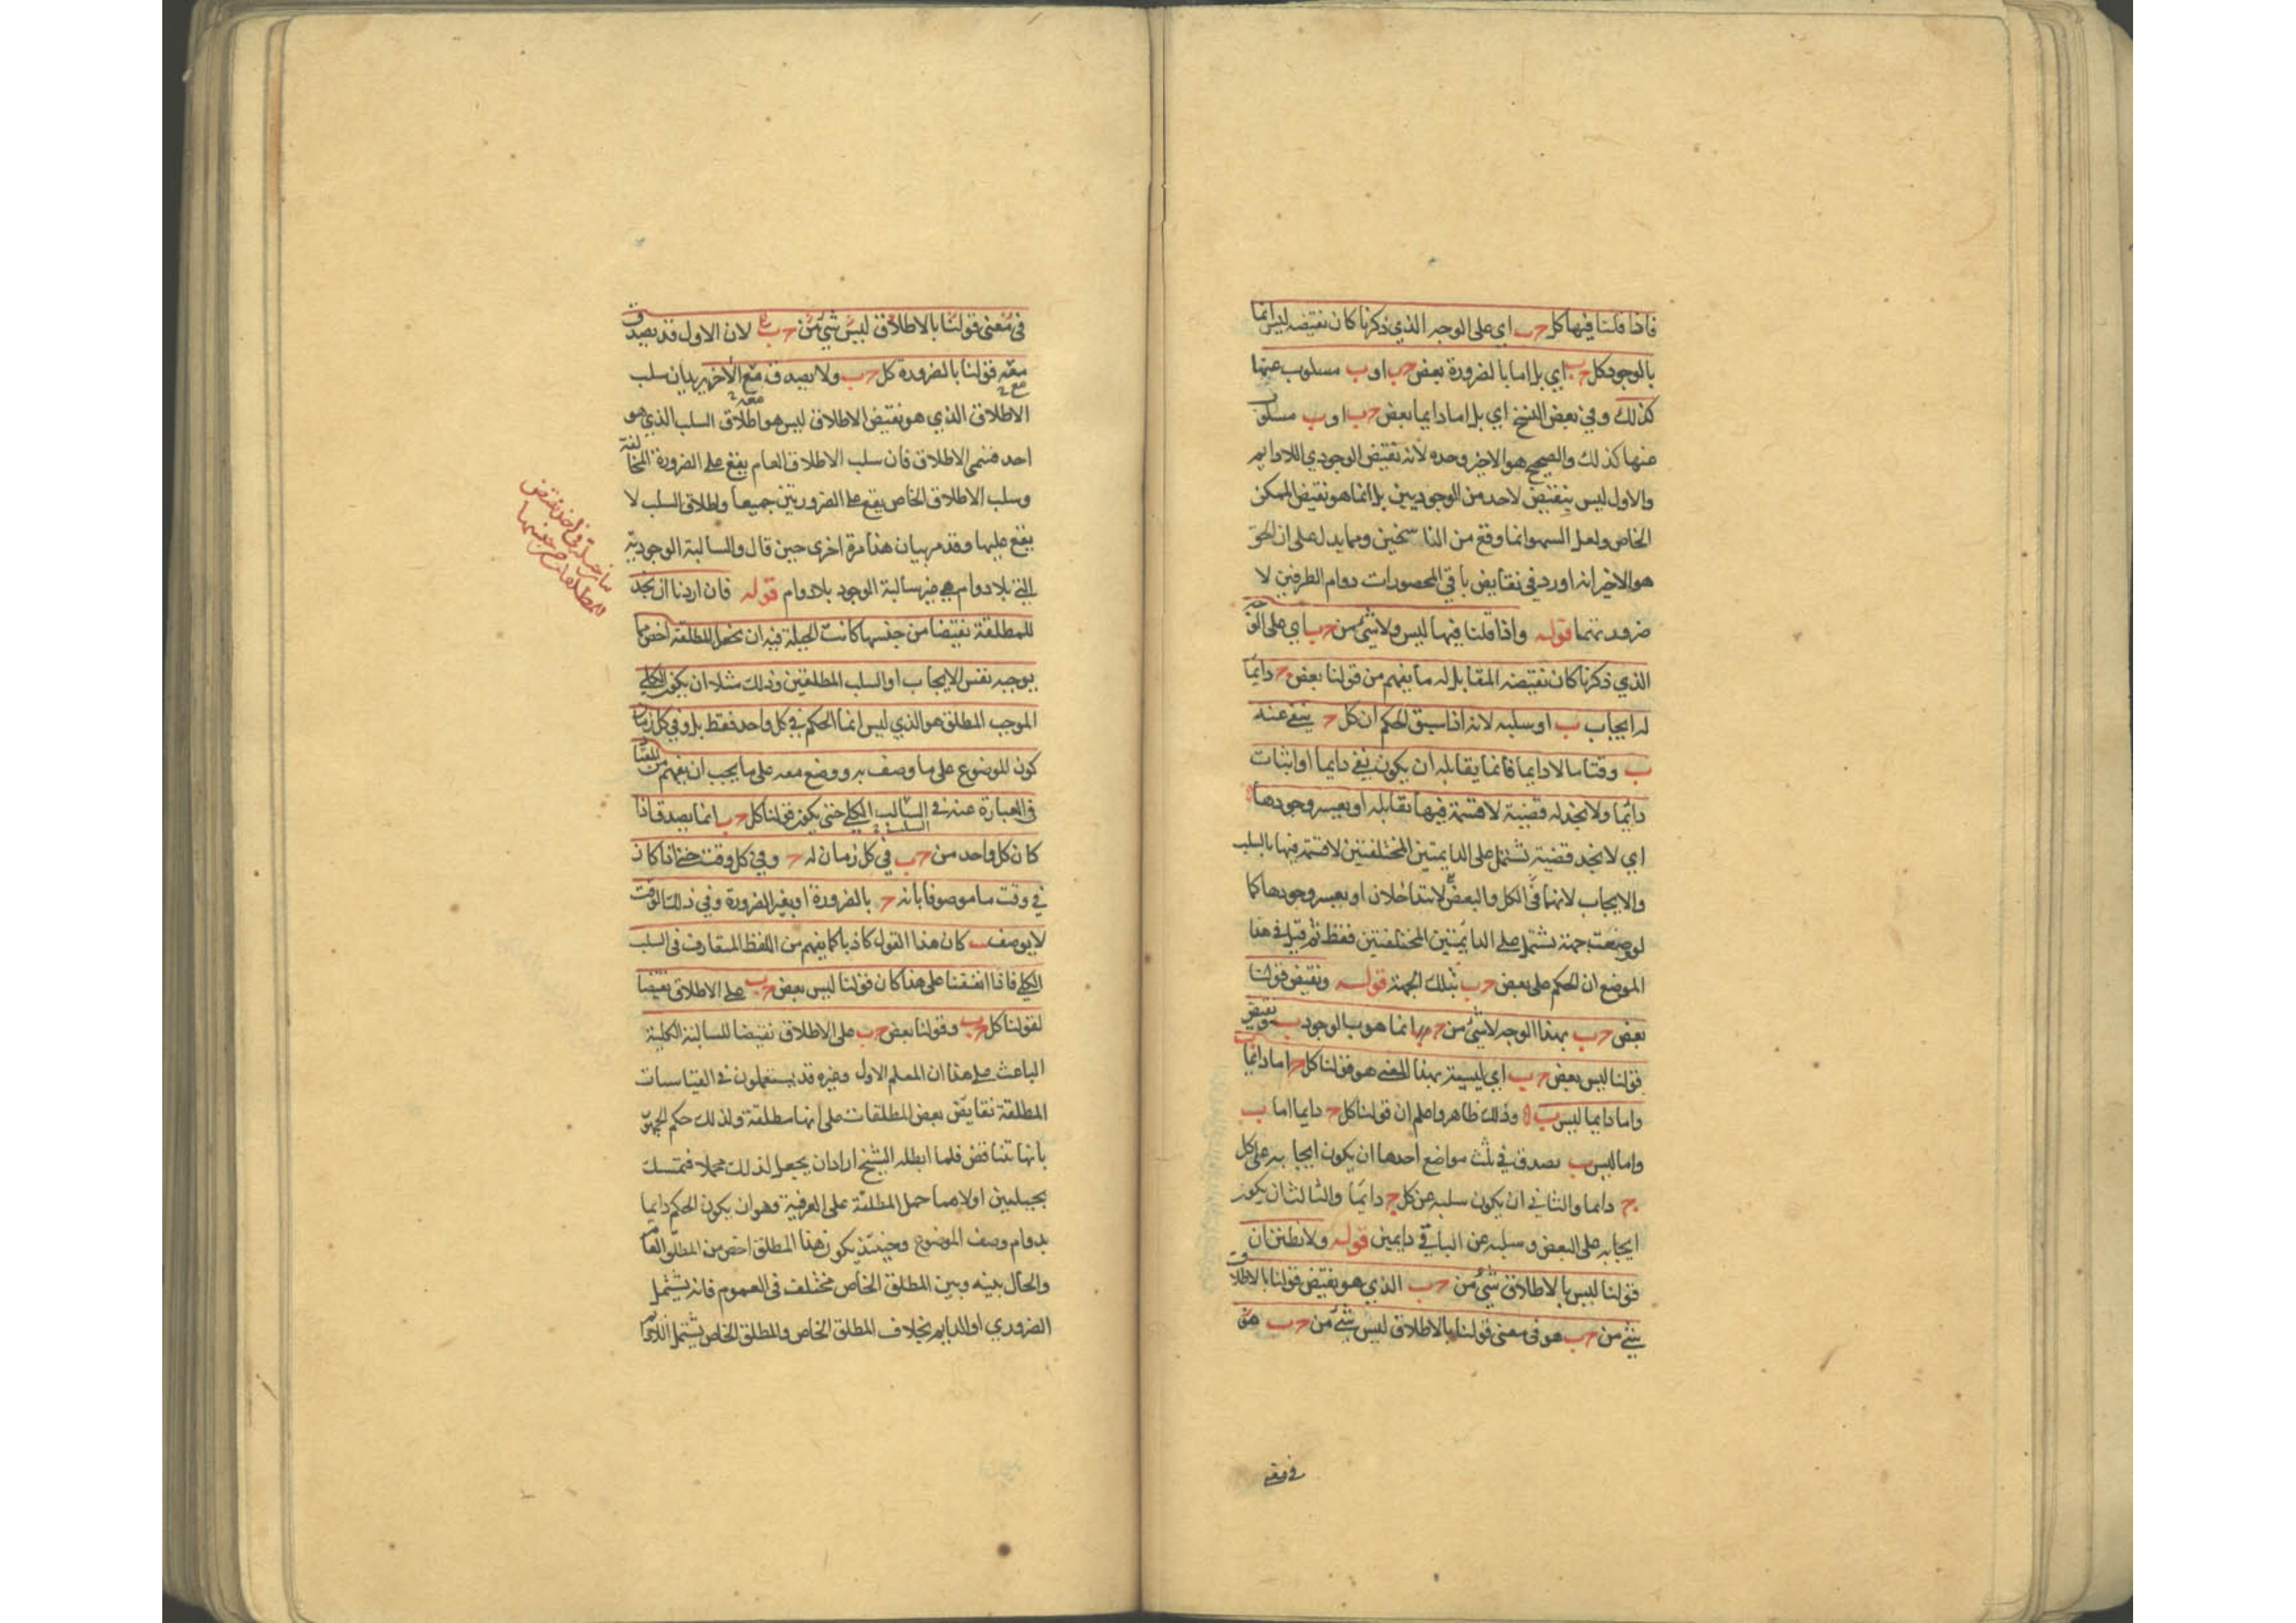 فاذا قلنا فيها كل ج ب اي على الوجه الذي ذكرنا كان نقيضه ليس انما
بالوجود كل ج ب اي بل اما بالضرورة بعض ج ب او ب مسلوب عنها
كذلك وفي بعض النسخ اي بل اما دايما بعض ج ب او ب مسلوب
عنها كذلك والصحيح هو الاخير وحده لانه نقيض الوجودي اللادايم
والاول ليس بنقيض لاحد من الوجوديين بل انما هو نقيض الممكن
الخاص ولعل السهو انما وقع من الناسخين ومما يدل على ان الحق
هو الاخير انه اورد في نقايض باقي المحصورات دوام الطرفين لا
ضرورتهما قوله واذا قلنا فيها ليس ولا شئ من ج ب اي على الوجه
الذي ذكرنا كان نقيضه المقابل له ما يفهم من قولنا بعض ج دايما
له ايجاب ب او سلبه لانه اذا سبق الحكم ان كل ج ينفي عنه
ب وقتا ما لا دايما فانما يقابله ان يكون نفي دايما او اثبات
دائما ولا نجد له قضية لا قسمة فيها تقابله او يعسر وجودها
اي لا نجد قضية تشتمل على الدايمتين المختلفتين لا قسمة فيها بالسلب
والايجاب لانهما في الكل والبعض لا تتداخلان او يعسر وجودها كما
لو وضعت جهة تشتمل على الدائمتين المختلفتين فقط ثم قيل في هذا
الموضع ان الحكم على بعض ج ب بتلك الجهة قوله ونقيض قولنا
بعض ج ب بهذا الوجه لا شئ من ج انما هو بالوجود ب ونقيض
قولنا ليس بعض ج ب اي ليسية بهذا المعنى هو قولنا كل ج اما دائما ب
واما دايما ليس ب وذلك ظاهر واعلم ان قولنا كل ج دايما اما ب
واما ليس ب يصدق في ثلث مواضع احدها ان يكون ايجابه على كل
ج دايما والثاني ان يكون سلبه عن كل ج دائما والثالث ان يكون
ايجابه على البعض وسلبه عن الباقي دايمين قوله ولا تظنن ان
قولنا ليس بالاطلاق شئ من ج ب الذي هو نقيض قولنا بالاطلاق
شئ من ج ب هو في معنى قولنا بالاطلاق ليس شئ من ج ب
في معنى
في معنى قولنا بالاطلاق ليس شئ من ج ب لان الاول قد يصدق
معه قولنا بالضرورة كل ج ب ولا يصدق مع الاخر يريد ان سلب
مع
معه
الاطلاق الذي هو نقيض الاطلاق ليس هو اطلاق السلب الذي هو
احد قسمي الاطلاق فان سلب الاطلاق العام يقع على الضرورة المخالفة
وسلب الاطلاق الخاص يقع على الضروريتين جميعا واطلاق السلب لا
يقع عليها وقد مر بيان هذا مرة اخرى حين قال والسالبة الوجودية
التي بلا دوام هي غير سالبة الوجود بلا دوام قوله فان اردنا ان نجد
للمطلقة نقيضا من جنسها كانت الحيلة فيه ان نجعل المطلقة اخص مما
يوجبه نفس الايجاب او السلب المطلقين وذلك مثلا ان يكون الكلي
الموجب المطلق هو الذي ليس انما الحكم في كل واحد فقط بل وفي كل زمان
كون الموضوع على ما وصف به ووضع معه على ما يجب ان يفهم من المعتاد
في العبارة عنه في السالب الكلي حتى يكون قولنا كل ج ب انما يصدق اذا
السلب
كان كل واحد من ج ب في كل زمان له ج وفي كل وقت حتى اذا كان
في وقت ما موصوفا بانه ج بالضرورة او بغير الضرورة وفي ذلك الوقت
لا يوصف ب كان هذا القول كاذبا كما يفهم من اللفظ المتعارف في السلب
الكلي فاذا اتفقنا على هذا كان قولنا ليس بعض ج ب على الاطلاق نقيضا
لقولنا كل ج ب وقولنا بعض ج ب على الاطلاق نقيضا للسالبة الكلية
الباعث على هذا ان المعلم الاول وغيره قد يستعملون في القياسات
المطلقة نقايض بعض المطلقات على انها مطلقة ولذلك حكم الجمهور
بانها تتناقض فلما ابطله الشيخ اراد ان يجعل لذلك محملا فتمسك
بحيلتين اولاهما حمل المطلقة على العرفية وهو ان يكون الحكم دايما
بدوام وصف الموضوع وحينئذ يكون هذا المطلق اخص من المطلق العام
والحال بينه وبين المطلق الخاص مختلف في العموم فانه يشتمل
الضروري او الدايم بخلاف المطلق الخاص والمطلق الخاص يشتمل اللادوام
للمطلقات من جنسها